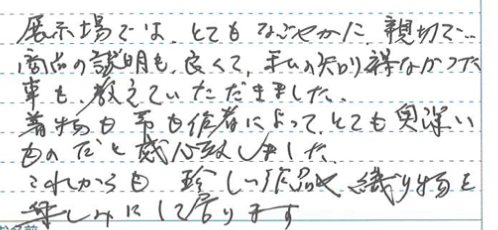 展示場では、とてもなごやかに親切で..
商品の説明も、良くて、私の知り得なかった
事も、教えていただきました。
着物も帯も作者によって、とても奥深い
ものだと感心致しました。
これからも 珍しい作品や 織り物を
楽しみにして居ります